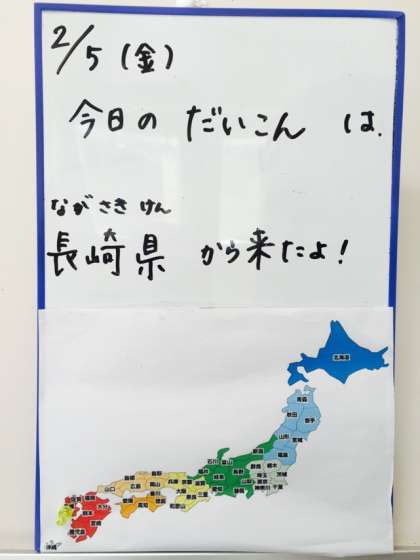 2/5(金)
今日の だいこん は、
ながさきけん
長崎県 から来たよ!
北海道
青森
秋田 岩手
山形 宮城
新潟 福島
石川 富山
群馬 栃木
長野
福井 岐阜
埼玉 茨城
山梨 東京
神奈川 千葉
愛知 静岡
鳥取
島根 岡山
広島
山口
兵庫 京都 滋賀
大阪
奈良 三重
和歌山
香川
徳島
愛媛 高知
佐賀 福岡
大分
熊本
宮崎
鹿児島
沖縄